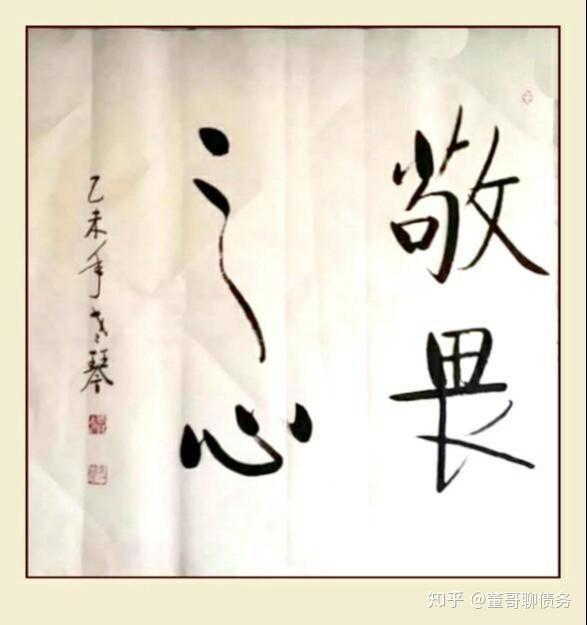 敬畏
之心
乙未年冬琴
知乎 @董哥聊债务